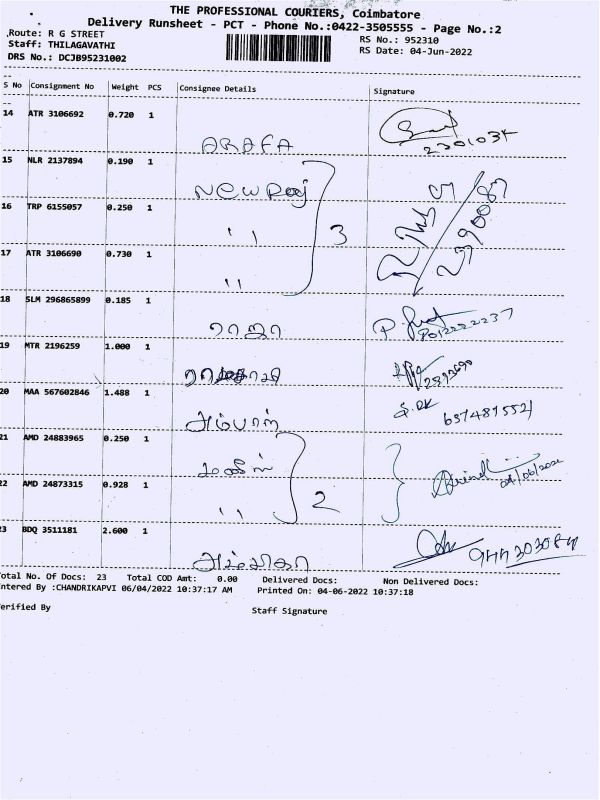 THE PROFESSIONAL COURIERS, Coimbatore
Delivery Runsheet - PCT - Phone No.:0422-3505555 - Page No.:2
Route: R G STREET
RS No.: 952310
Staff: THILAGAVATHI
RS Date: 04-Jun-2022
DRS No.: DCJB95231002
S No Consignment No Weight PCS Consignee Details Signature
14 ATR 3106692 0.720 1
ARAFA
2301034
15 NLR 2137894 0.190 1
New Raj
16 TRP 6155057 0.250 1
" 3
17 ATR 3106690 0.730 1
"
18 SLM 296865899 0.185 1
ராஜா
19 MTR 2196259 1.000 1
20 MAA 567602846 1.488 1
அம்பாள்
21 AMD 24883965 0.250 1
04/06/2022
22 AMD 24873315 0.928 1
" 2
23 BDQ 3511181 2.600 1
அம்பிகா
Total No. Of Docs: 23 Total COD Amt: 0.00 Delivered Docs: Non Delivered Docs:
Entered By :CHANDRIKAPVI 06/04/2022 10:37:17 AM Printed On: 04-06-2022 10:37:18
Verified By Staff Signature